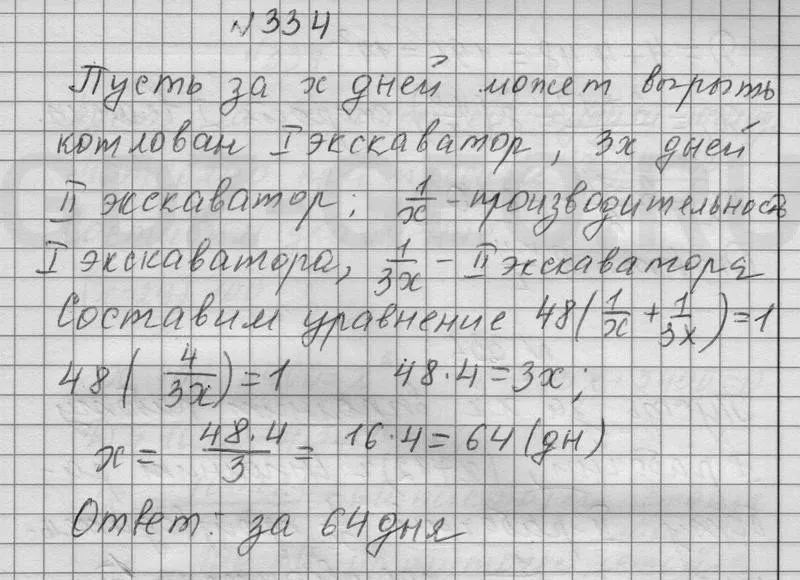 №334
Пусть за x дней может вырыть
котлован I экскаватор, 3x дней
II экскаватор; 1/x - производительность
I экскаватора, 1/3x - II экскаватора
Составим уравнение 48(1/x + 1/3x) = 1
48( 4/3x) = 1 48·4 = 3x;
x = 48·4/3 = 16·4 = 64 (дн)
Ответ: за 64 дня